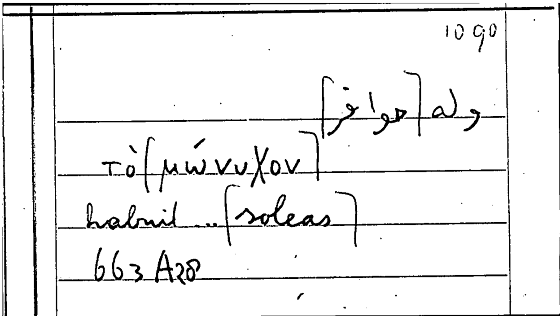 1090
وله [حوافر]
τὸ [μώνυχον]
habuit .. [soleas]
663 A28